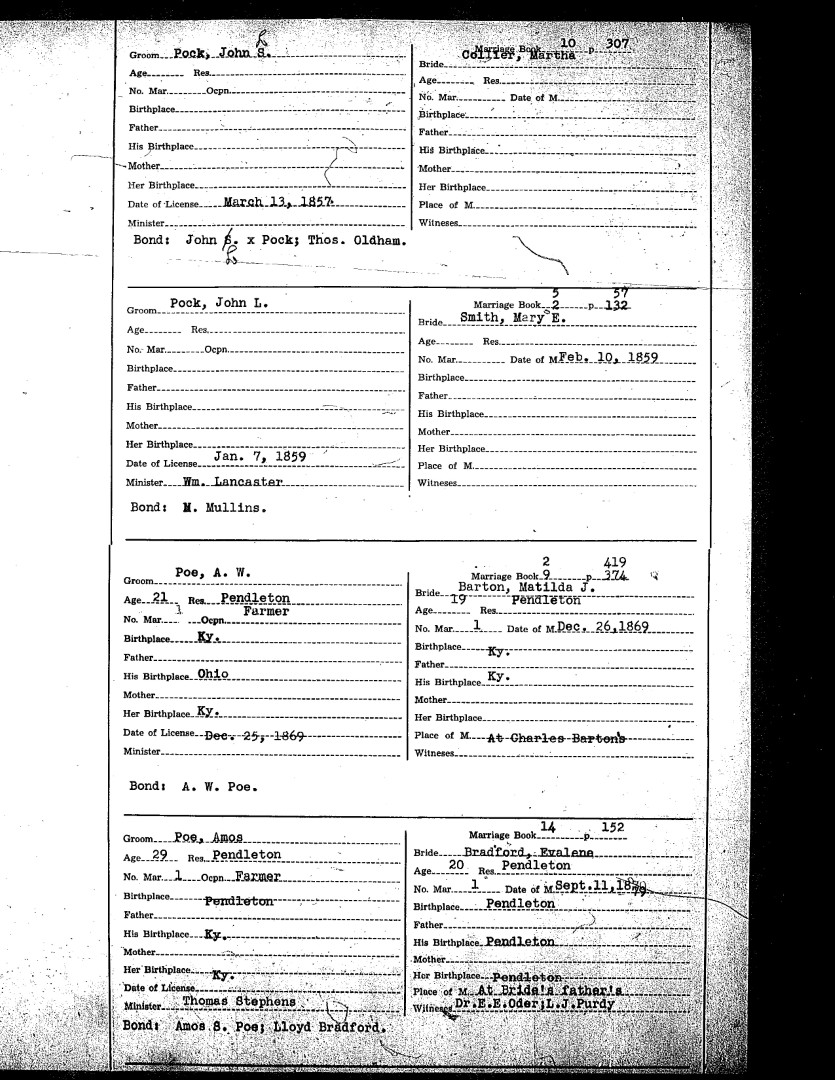 L
Groom Pock, John S.
Age Res.
No. Mar. Ocpn.
Birthplace
Father
His Birthplace
Mother
Her Birthplace
Date of License March 13, 1857
Minister
Marriage Book 10 p. 307
Bride Collier, Martha
Age Res.
No. Mar. Date of M.
Birthplace
Father
His Birthplace
Mother
Her Birthplace
Place of M.
Witneses
Bond: John S. x Pock; Thos. Oldham.
L
Groom Pock, John L.
Age Res.
No. Mar. Ocpn.
Birthplace
Father
His Birthplace
Mother
Her Birthplace
Date of License Jan. 7, 1859
Minister Wm. Lancaster
5 57
Marriage Book 2 p. 132
Bride Smith, Mary E.
Age Res.
No. Mar. Date of M. Feb. 10, 1859
Birthplace
Father
His Birthplace
Mother
Her Birthplace
Place of M.
Witneses
Bond: M. Mullins.
Groom Poe, A. W.
Age 21 Res. Pendleton
No. Mar. 1 Ocpn. Farmer
Birthplace Ky.
Father
His Birthplace Ohio
Mother
Her Birthplace Ky.
Date of License Dec. 25, 1869
Minister
2 419
Marriage Book 9 p. 374
Bride Barton, Matilda J.
Age 19 Res. Pendleton
No. Mar. 1 Date of M. Dec. 26,1869
Birthplace Ky.
Father
His Birthplace Ky.
Mother
Her Birthplace
Place of M. At Charles Barton's
Witneses
Bond: A. W. Poe.
Groom Poe, Amos
Age 29 Res. Pendleton
No. Mar. 1 Ocpn. Farmer
Birthplace Pendleton
Father
His Birthplace Ky.
Mother
Her Birthplace Ky.
Date of License
Minister Thomas Stephens
Marriage Book 14 p. 152
Bride Bradford, Evalene
Age 20 Res. Pendleton
No. Mar. 1 Date of M. Sept.11,1879
Birthplace Pendleton
Father
His Birthplace Pendleton
Mother
Her Birthplace Pendleton
Place of M. At Bride's father's
Witneses Dr.E.E.Oder;L.J.Purdy
Bond: Amos S. Poe; Lloyd Bradford.